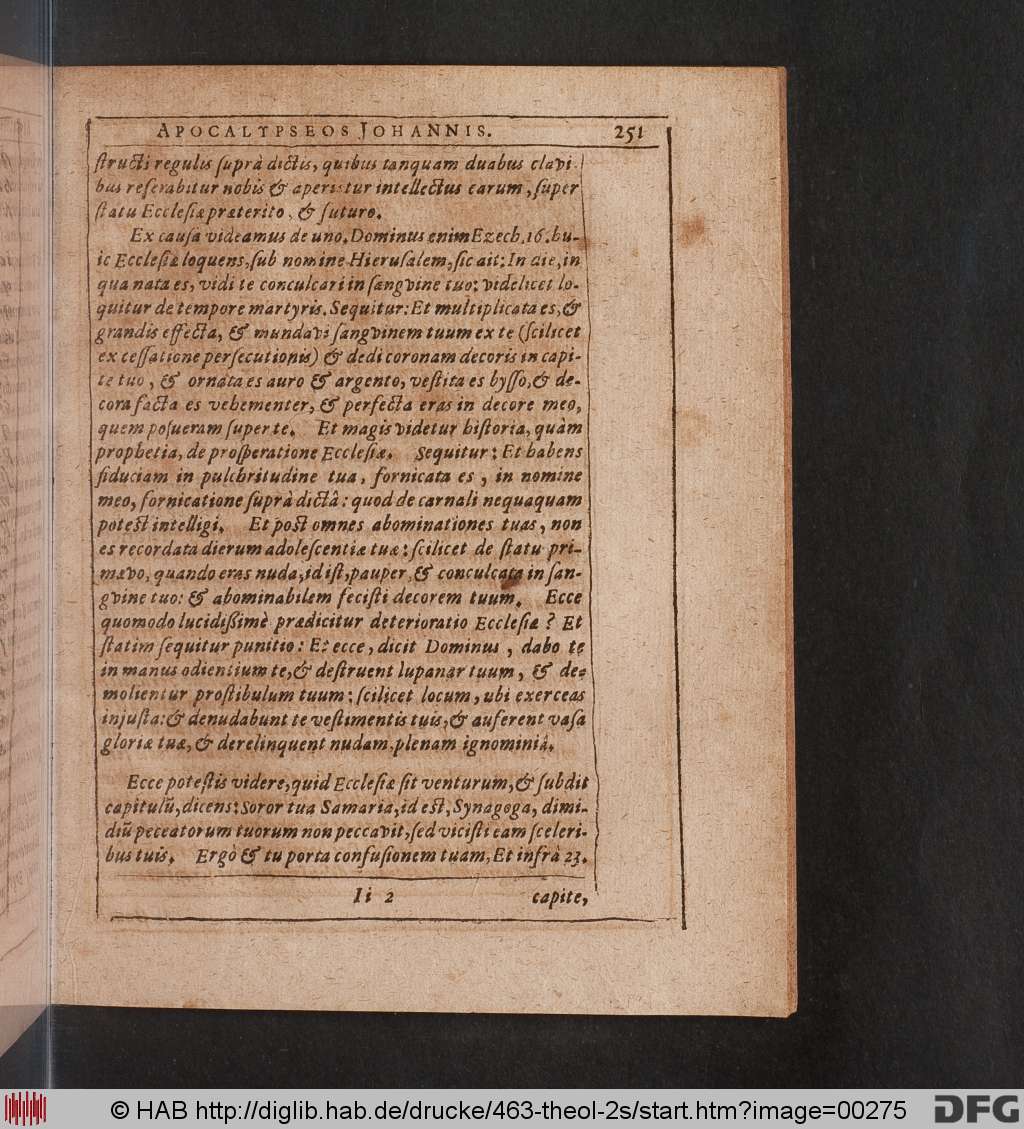 APOCALYPSEOS JOHANNIS. 251
ſtructi regulis ſuprà dictis, quibus tanquam duabus clavi-
bus reſerabitur nobis & aperietur intellectus earum, ſuper
ſtatu Eccleſiæ præterito, & futuro.
Ex cauſa videamus de uno. Dominus enim Ezech. 16. hu-
ic Eccleſiæ loquens, ſub nomine Hieruſalem, ſic ait: In die, in
qua nata es, vidi te conculcari in ſangvine tuo: videlicet lo-
quitur de tempore martyris. Sequitur: Et multiplicata es, &
grandis effecta, & mundavi ſangvinem tuum ex te (ſcilicet
ex ceſſatione perſecutionis) & dedi coronam decoris in capi-
te tuo, & ornata es auro & argento, veſtita es byſſo, & de-
cora facta es vehementer, & perfecta eras in decore meo,
quem poſueram ſuper te. Et magis videtur hiſtoria, quàm
prophetia, de proſperatione Eccleſiæ. Sequitur: Et habens
fiduciam in pulchritudine tua, fornicata es, in nomine
meo, fornicatione ſuprà dictâ: quod de carnali nequaquam
poteſt intelligi. Et poſt omnes abominationes tuas, non
es recordata dierum adoleſcentiæ tuæ: ſcilicet de ſtatu pri-
mævo, quando eras nuda, id iſt, pauper, & conculcata in ſan-
gvine tuo: & abominabilem feciſti decorem tuum. Ecce
quomodo lucidißimè prædicitur deterioratio Eccleſiæ? Et
ſtatim ſequitur punitio: Et ecce, dicit Dominus, dabo te
in manus odientium te, & deſtruent lupanar tuum, & de-
molientur proſtibulum tuum: ſcilicet locum, ubi exerceas
injuſta: & denudabunt te veſtimentis tuis, & auferent vaſa
gloriæ tuæ, & derelinquent nudam, plenam ignominiâ.
Ecce poteſtis videre, quid Eccleſiæ ſit venturum, & ſubdit
capitulũ, dicens: Soror tua Samaria, id eſt, Synagoga, dimi-
diũ peccatorum tuorum non peccavit, ſed viciſti eam ſceleri-
bus tuis. Ergò & tu porta confuſionem tuam, Et infrà 23.
Ii 2 capite,
© HAB http://diglib.hab.de/drucke/463-theol-2s/start.htm?image=00275 DFG